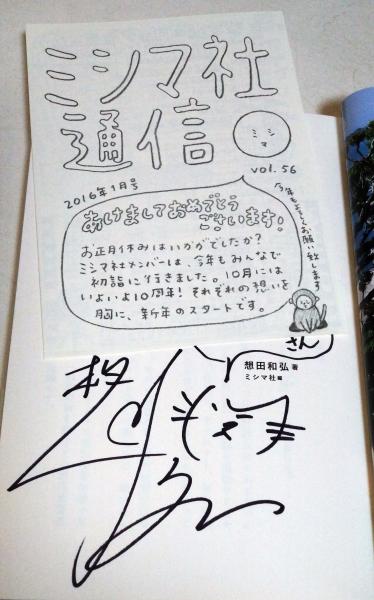 ミシマ社
通信
ミシマ
vol. 56
2016年1月号
あけましておめでとう
ございます！
お正月休みはいかがでしたか？
ミシマ社メンバーは、今年もみんなで
初詣に行きました。10月には
いよいよ10周年！それぞれの想いを
胸に、新年のスタートです。
今年もよろしくお願い致します
さん
想田和弘 著
ミシマ社 編